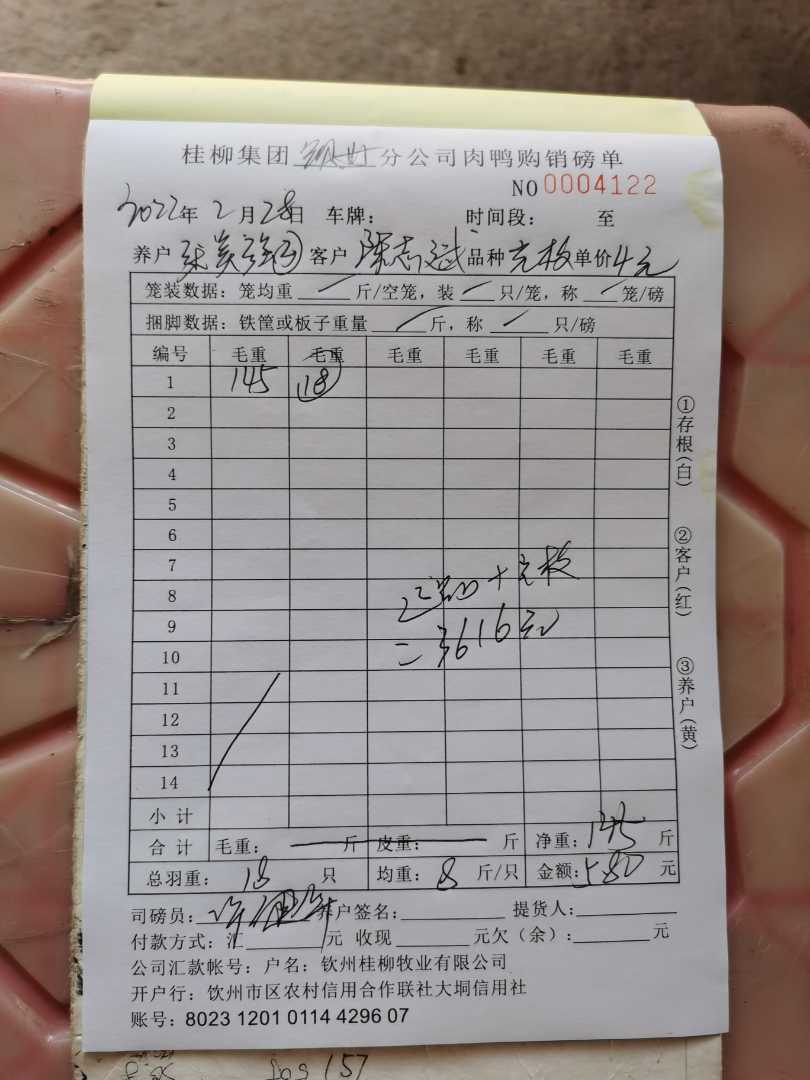 桂柳集团 分公司肉鸭购销磅单
NO 0004122
2022年 2月28日 车牌: 时间段: 至
养户 客户 陈志斌 品种 单价4元
笼装数据: 笼均重 斤/空笼, 装 只/笼, 称 笼/磅
捆脚数据: 铁筐或板子重量 斤, 称 只/磅
编号 毛重 毛重 毛重 毛重 毛重 毛重
1 145 18
2
3
4
5
6
7
8
9
10
=3616元
11
12
13
14
小计
合计 毛重: 斤 皮重: 斤 净重: 145 斤
总羽重: 18 只 均重: 8 斤/只 金额: 580 元
司磅员: 养户签名: 提货人:
付款方式: 汇 元 收现 元欠(余): 元
公司汇款帐号: 户名: 钦州桂柳牧业有限公司
开户行: 钦州市区农村信用合作联社大垌信用社
账号: 8023 1201 0114 4296 07
①存根(白)
②客户(红)
③养户(黄)
157